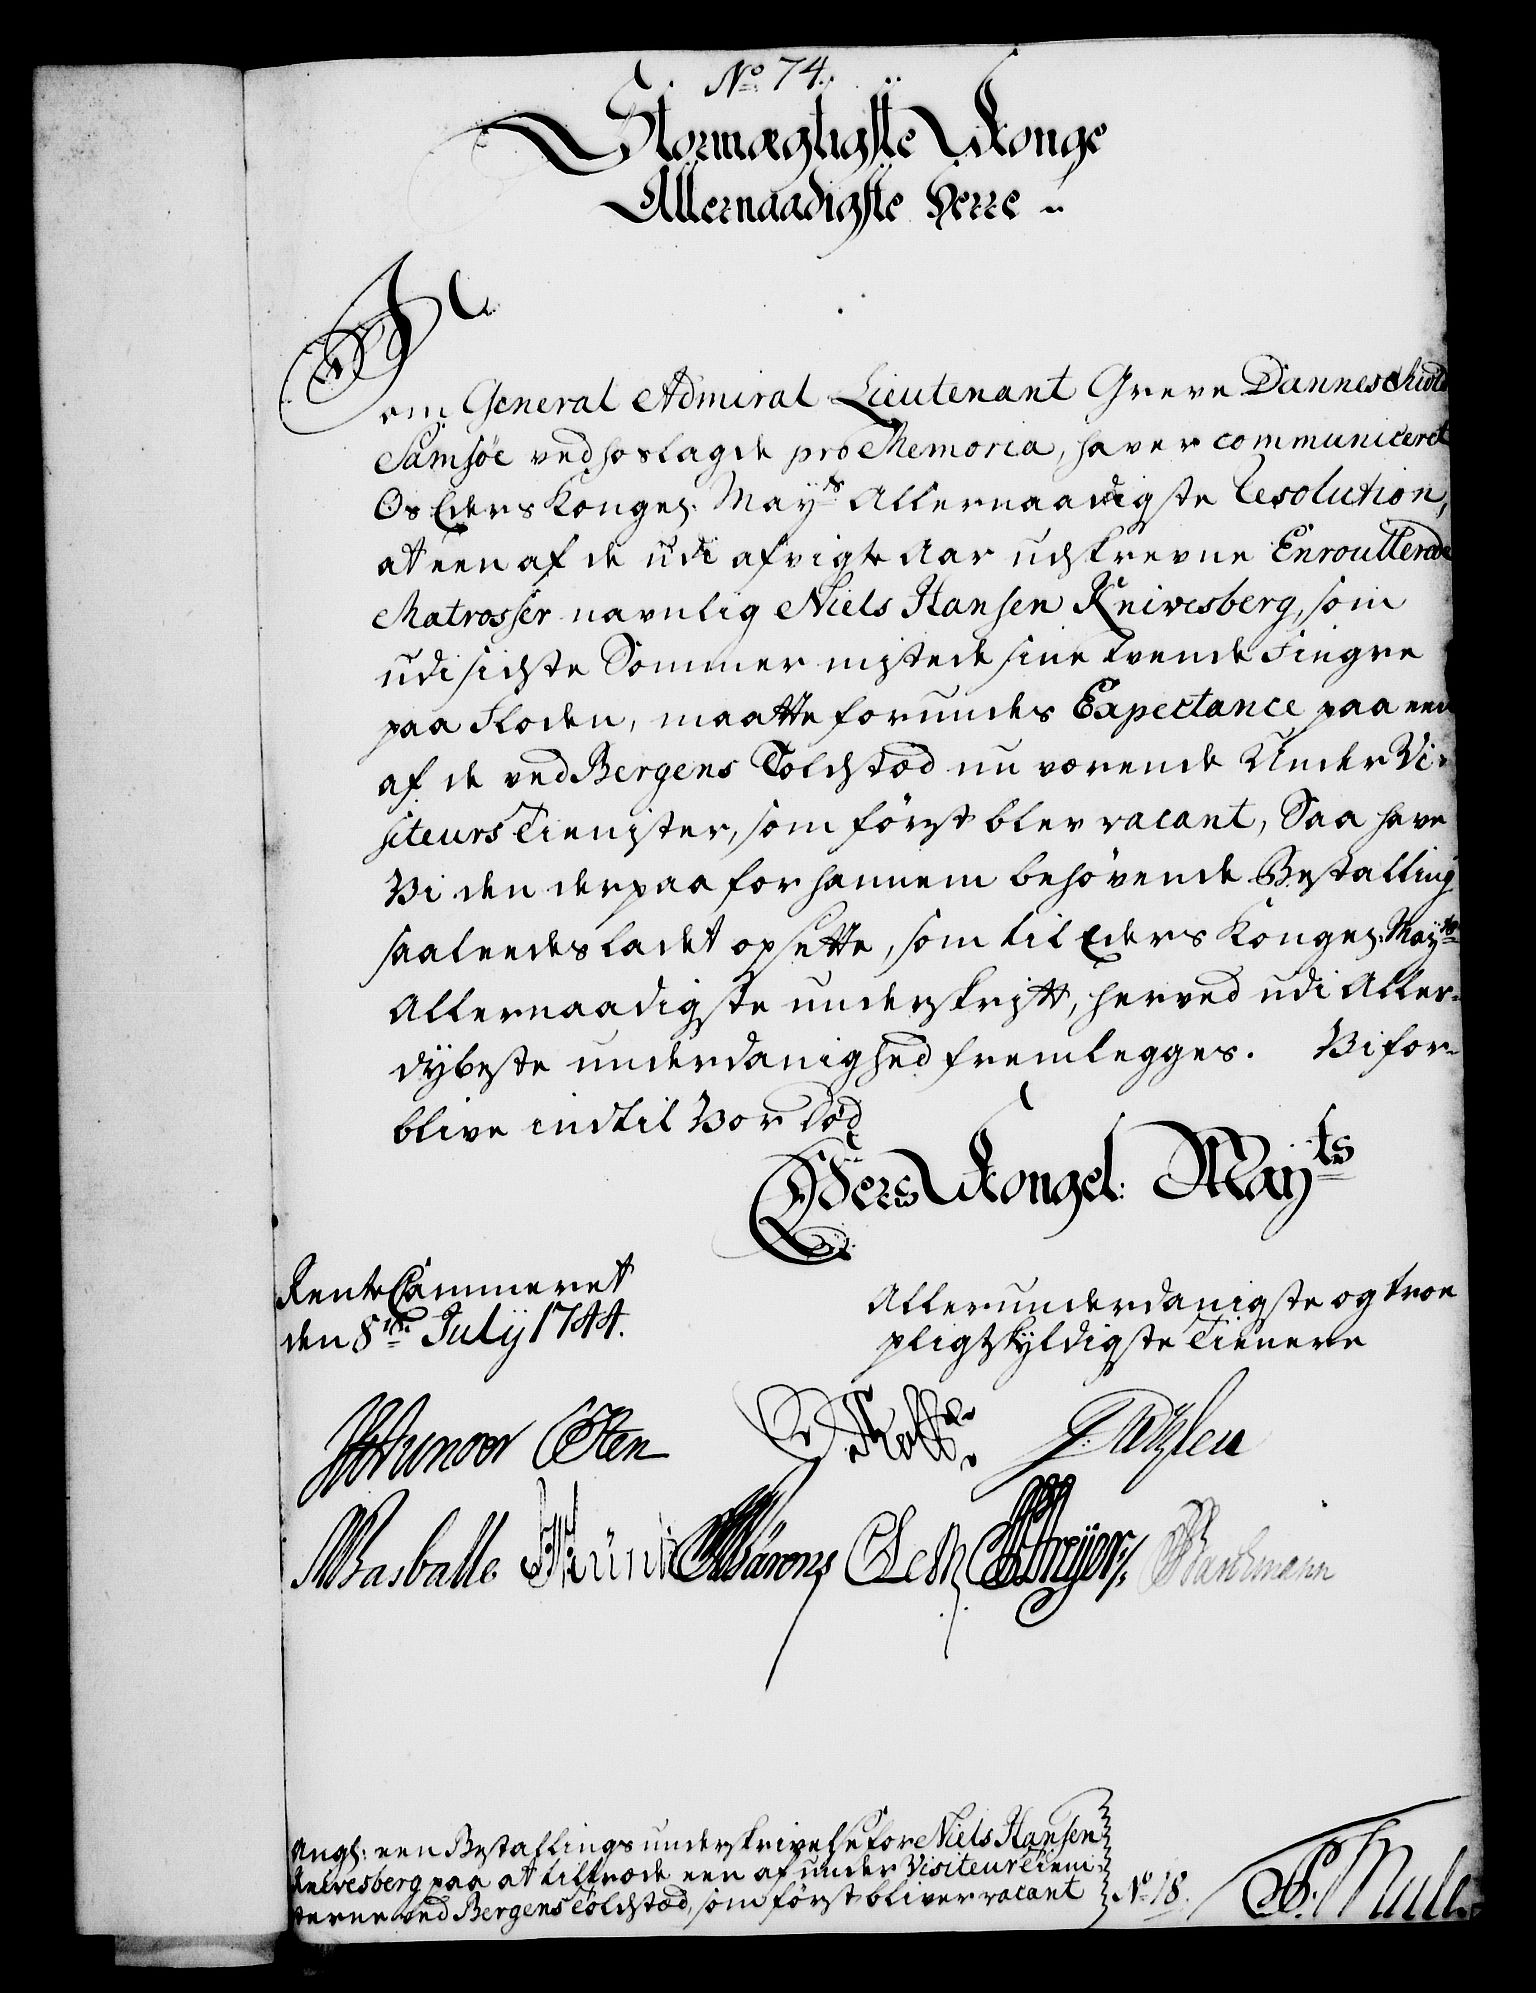 No 74.
Stormægtigste Konge
Allernaadigste Herre
Som General Admiral Lieutenant Greve Danneschiold
Samsöe vedhoslagde pro Memoria, haver communiceret
Os Eders Kongel: Mayts Allernaadigste Resolution,
at een af de udi afvigte Aar udskrevne Enroullerede
Matrosser navnlig Niels Hansen Knivesberg, som
udi sidste Sommer mistede sine tvende Fingre
paa Floden, maatte forundes Expectance paa een
af de ved Bergens Toldstæd nu værende Under Vi-
siteurs Tienister, som först blev vacant, Saa have
Vi den derpaa for hannem behövende Bestalling
saaleedes ladet opsette, som til Eders Kongel: Mayts
Allernaadigste underskrift, herved udi Aller-
dybeste underdanighed fremlegges. Vi for-
blive indtil Vor Död
Eders Kongel: Mayts
RenteCammeret
den 8de July 1744.
Allerunderdanigste og troe
pligtskyldigste Tienere
Often
Basballe
Angl: een Bestallings underskrivelse for Niels Hansen
Knivesberg paa at tiltræde een af under Visiteur Tieni-
sterne ved Bergens Toldstæd, som först bliver vacant
No 18.